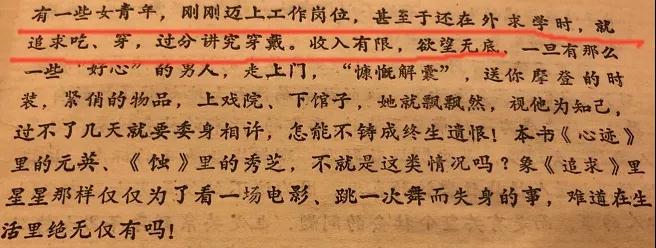 有一些女青年，刚刚迈上工作岗位，甚至于还在外求学时，就
追求吃、穿，过分讲究穿戴。收入有限，欲望无底，一旦有那么
一些“好心”的男人，走上门，“慷慨解囊”，送你摩登的时
装，紧俏的物品，上戏院、下馆子，她就飘飘然，视他为知己，
过不了几天就要委身相许，怎能不铸成终生遗恨！本书《心迹》
里的元英、《蚀》里的秀芝，不就是这类情况吗？象《追求》里
星星那样仅仅为了看一场电影、跳一次舞而失身的事，难道在生
活里绝无仅有吗！